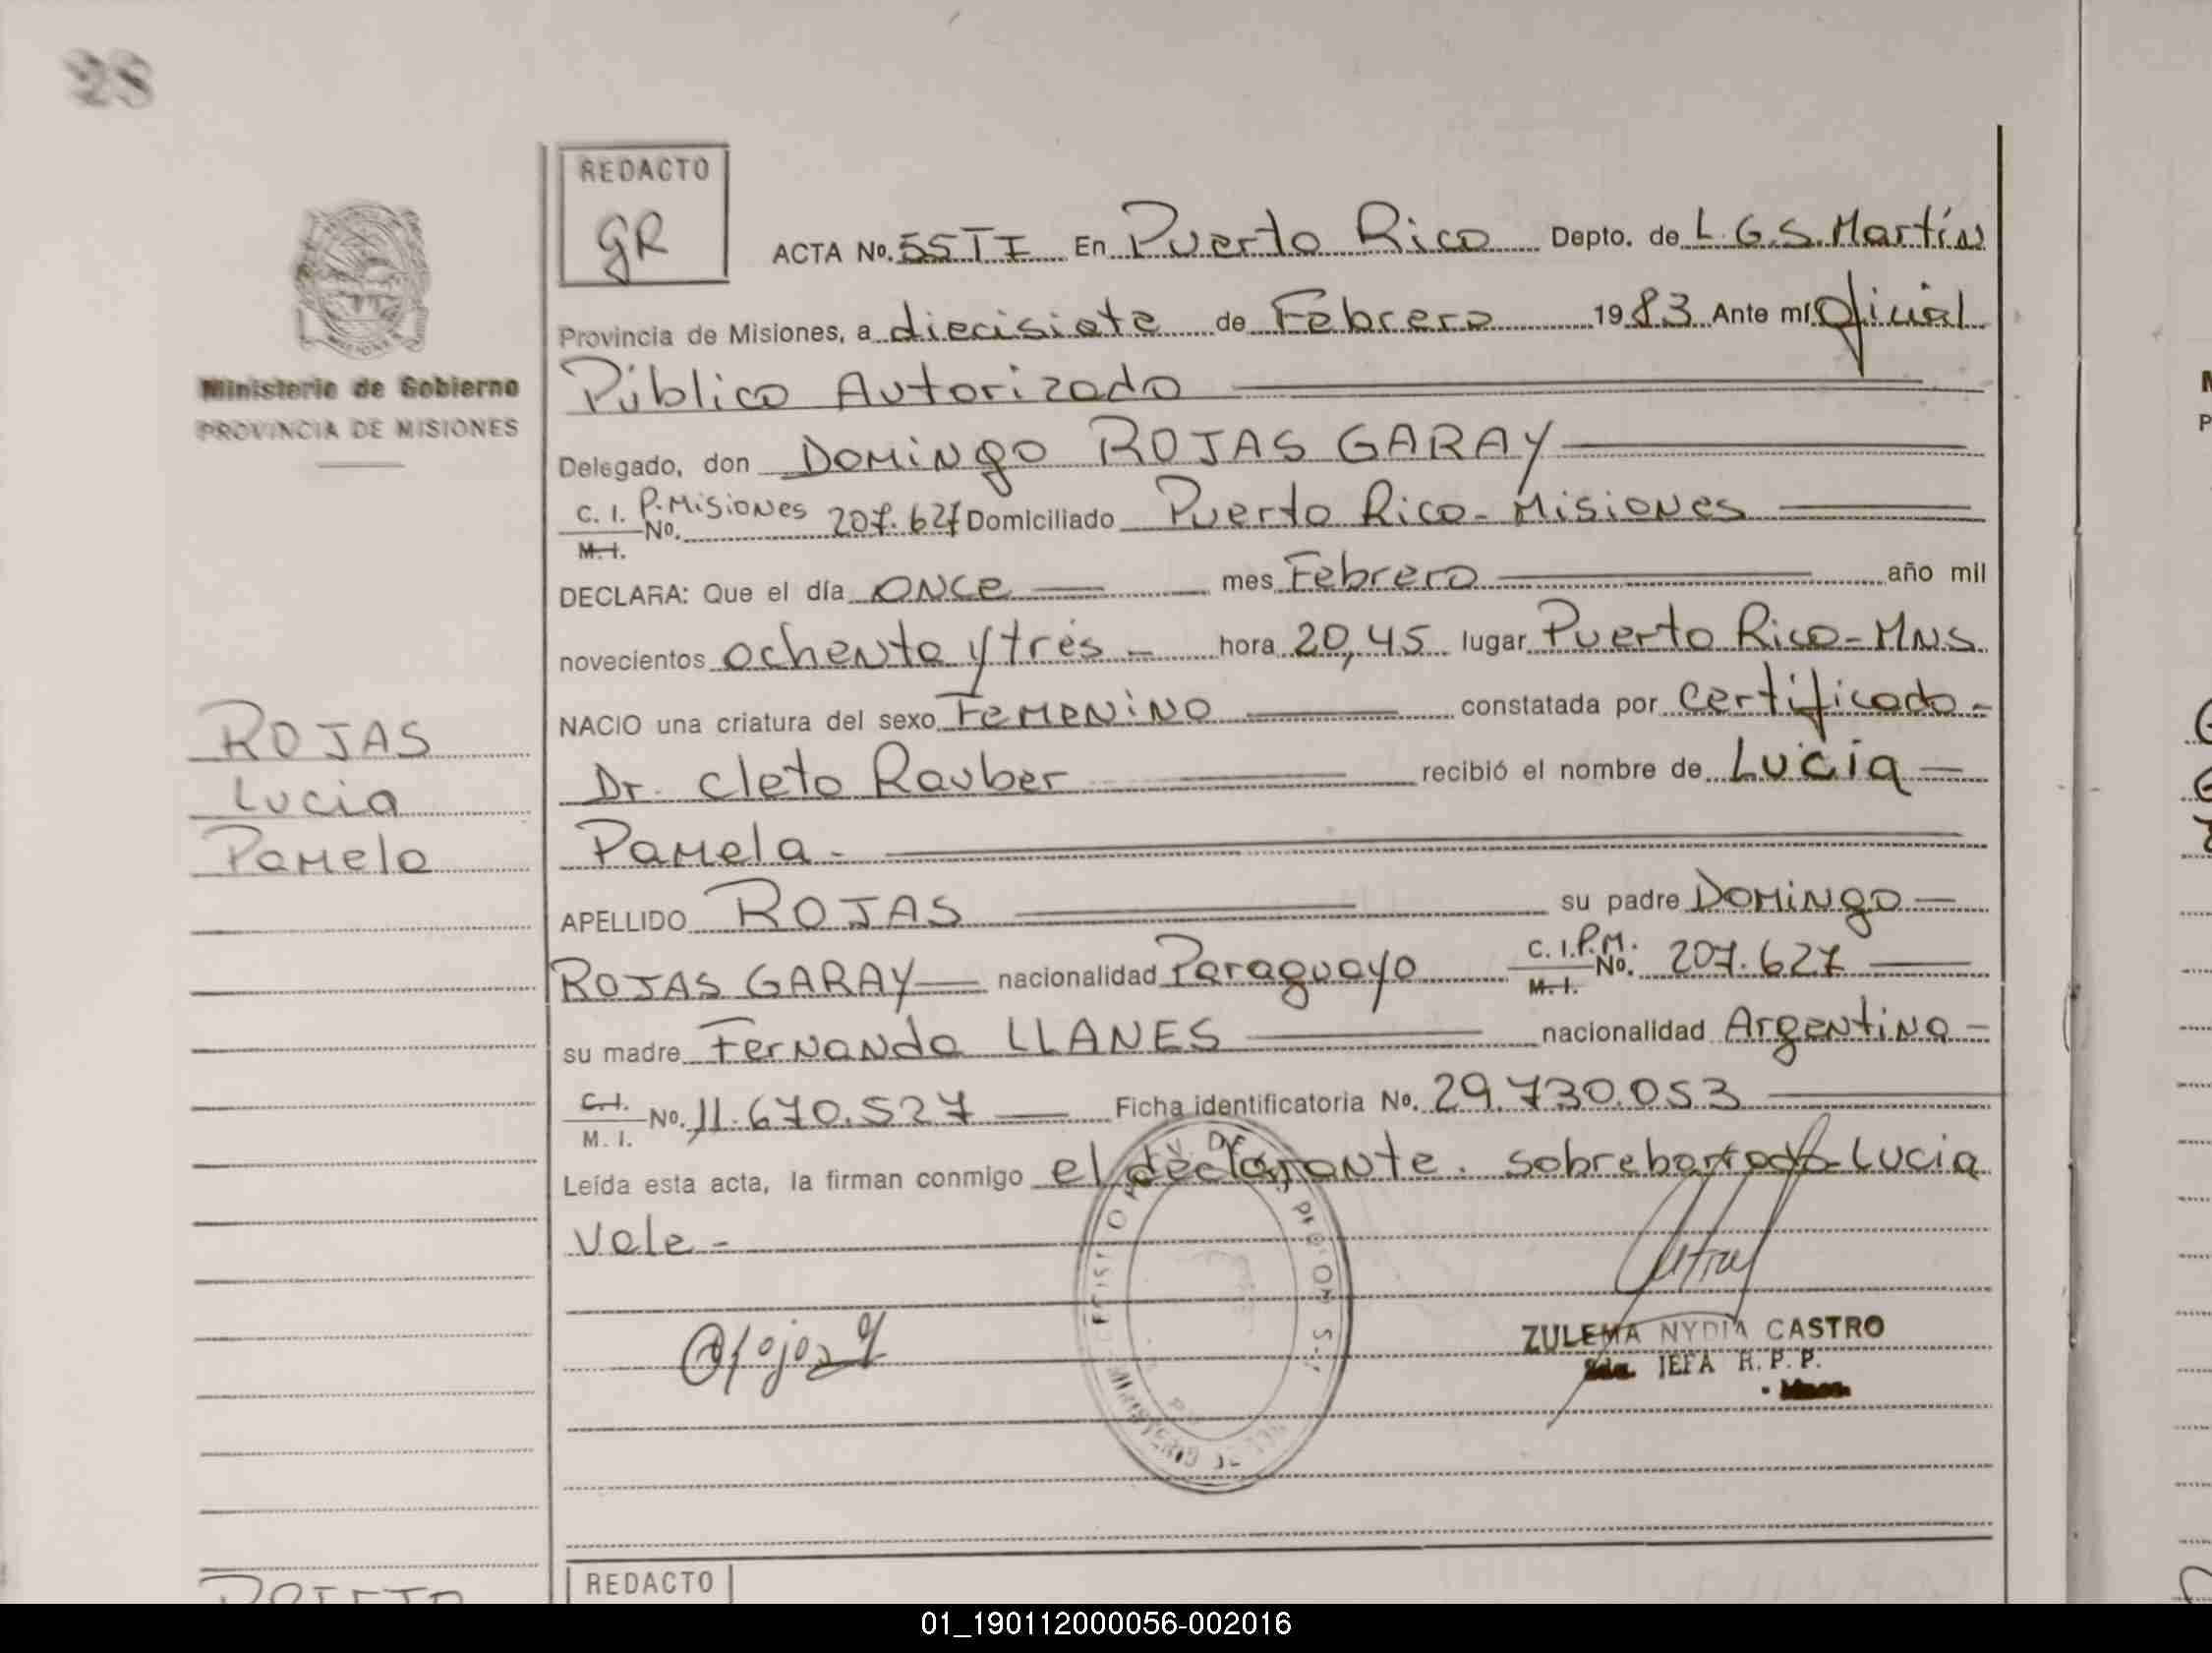 28
REDACTO
gR
ACTA No. 55 T I En Puerto Rico Depto. de L.G.S. Martín
Provincia de Misiones, a diecisiete de Febrero 1983 Ante mí Oficial
Público Autorizado
Delegado, don DOMINGO ROJAS GARAY
C. I. P. Misiones No. 207.627 Domiciliado Puerto Rico - Misiones
M. I.
DECLARA: Que el día ONCE mes Febrero año mil
novecientos ochenta y tres - hora 20,45 lugar Puerto Rico - MNS.
NACIO una criatura del sexo Femenino constatada por certificado -
Dr. Cleto Rauber recibió el nombre de Lucia
Pamela.-
APELLIDO ROJAS su padre DOMINGO
ROJAS GARAY nacionalidad Paraguayo C. I.P.M. No. 207.627
M. I.
su madre Fernanda LLANES nacionalidad Argentina -
C. I. No. 11.670.527 Ficha identificatoria No. 29.730.053
M. I.
Leída esta acta, la firman conmigo el declarante. sobreborrado Lucia
Vale -
ZULEMA NYDIA CASTRO
JEFA R. P. P.
Ministerio de Gobierno
PROVINCIA DE MISIONES
ROJAS
Lucia
Pamela
REDACTO
01_190112000056-002016